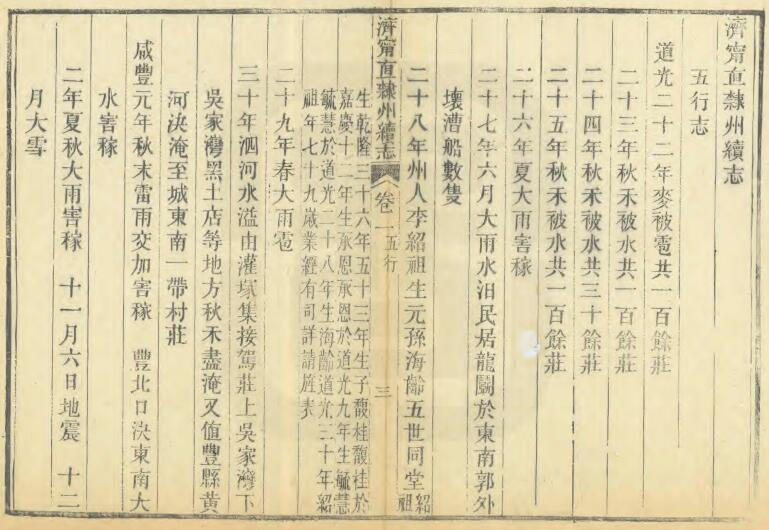 濟甯直隸州續志
五行志
道光二十二年麥被雹共一百餘莊
二十三年秋禾被水共一百餘莊
二十四年秋禾被水共三十餘莊
二十五年秋禾被水共一百餘莊
二十六年夏大雨害稼
二十七年六月大雨水汨民居龍鬭於東南郭外
壞漕船數隻
二十八年州人李紹祖生元孫海齡五世同堂紹祖
生乾隆三十六年五十三年生子馥桂馥桂於
嘉慶十二年生承恩承恩於道光九年生毓慧
濟甯直隸州續志 卷一 五行 三
毓慧於道光二十八年生海齡道光三十年紹
祖年七十九歲業經有司詳請旌表
二十九年春大雨雹
三十年泗河水溢由灌塚集接駕莊上吳家灣下
吳家灣黑土店等地方秋禾盡淹又值豐縣黃
河決淹至城東南一帶村莊
咸豐元年秋末雷雨交加害稼 豐北口決東南大
水害稼
二年夏秋大雨害稼 十一月六日地震 十二
月大雪